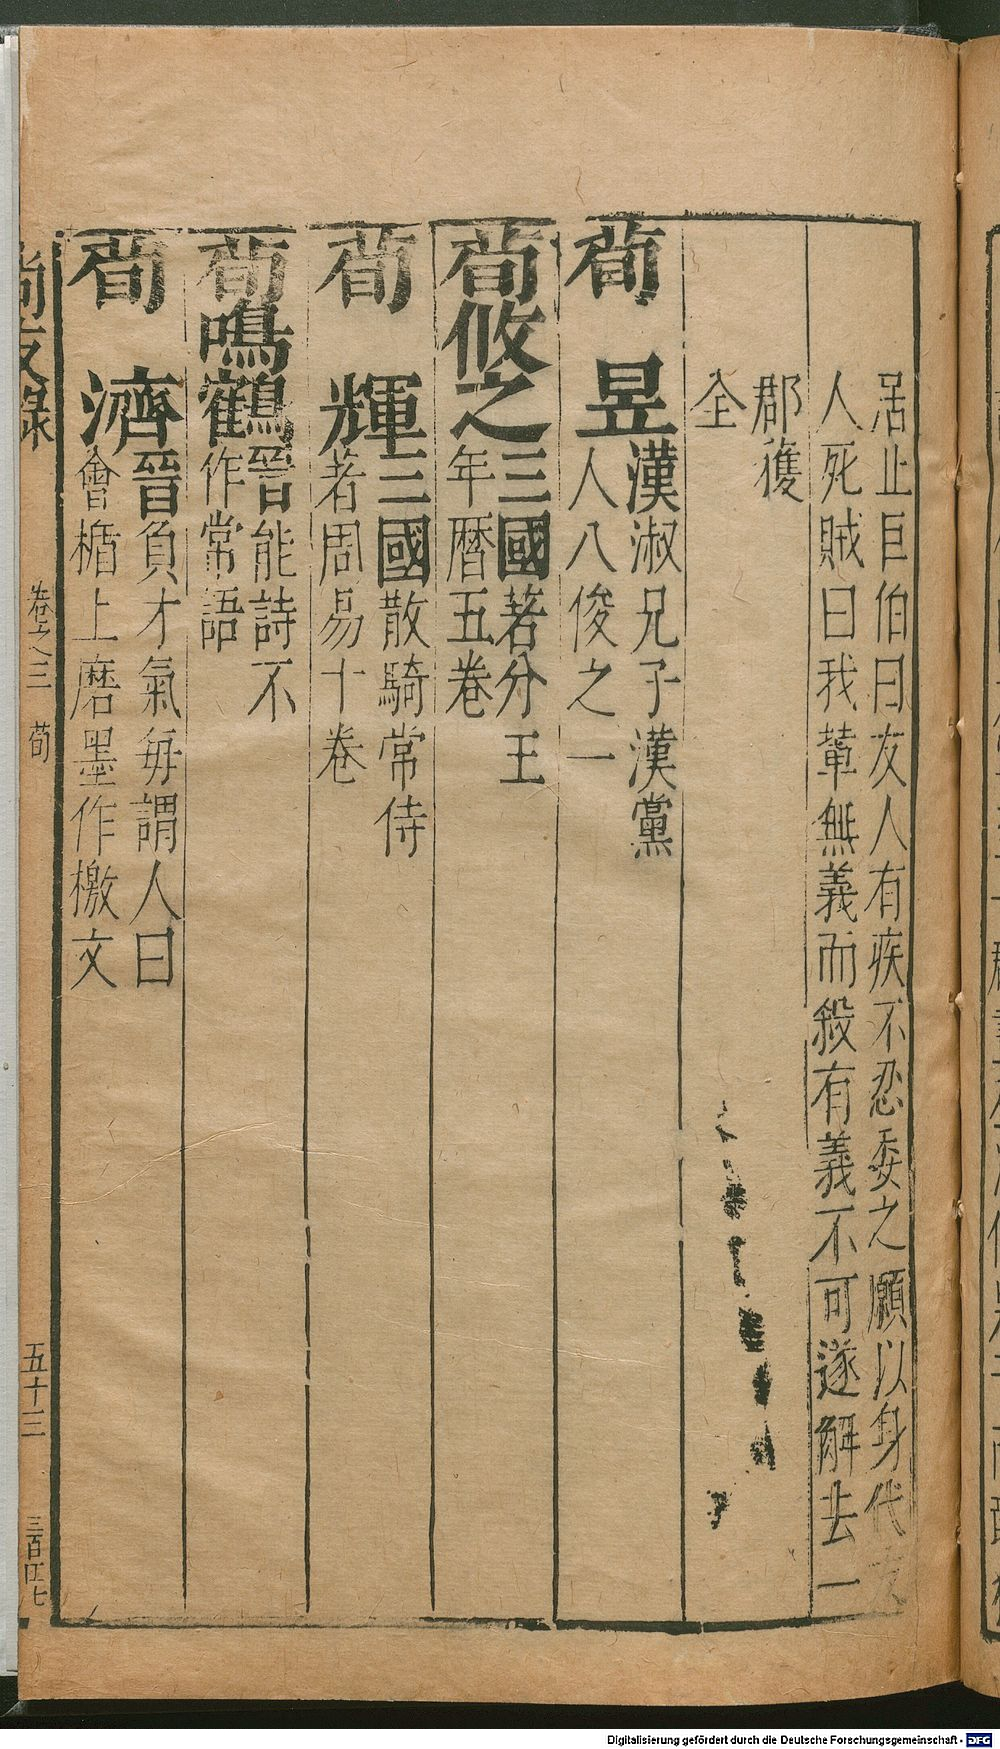 居止巨伯曰友人有疾不忍委之願以身代友
人死賊曰我輩無義而殺有義不可遂解去一
郡獲
全
荀昱
漢淑兄子漢黨
人八俊之一
荀攸之
三國著分王
年曆五卷
荀輝
三國散騎常侍
著周易十卷
荀鳴鶴
晉能詩不
作常語
荀濟
晉負才氣每謂人曰
會楯上磨墨作檄文
尚友錄
卷之三
荀
五十三
三百四七
Digitalisierung gefördert durch die Deutsche Forschungsgemeinschaft - DFG